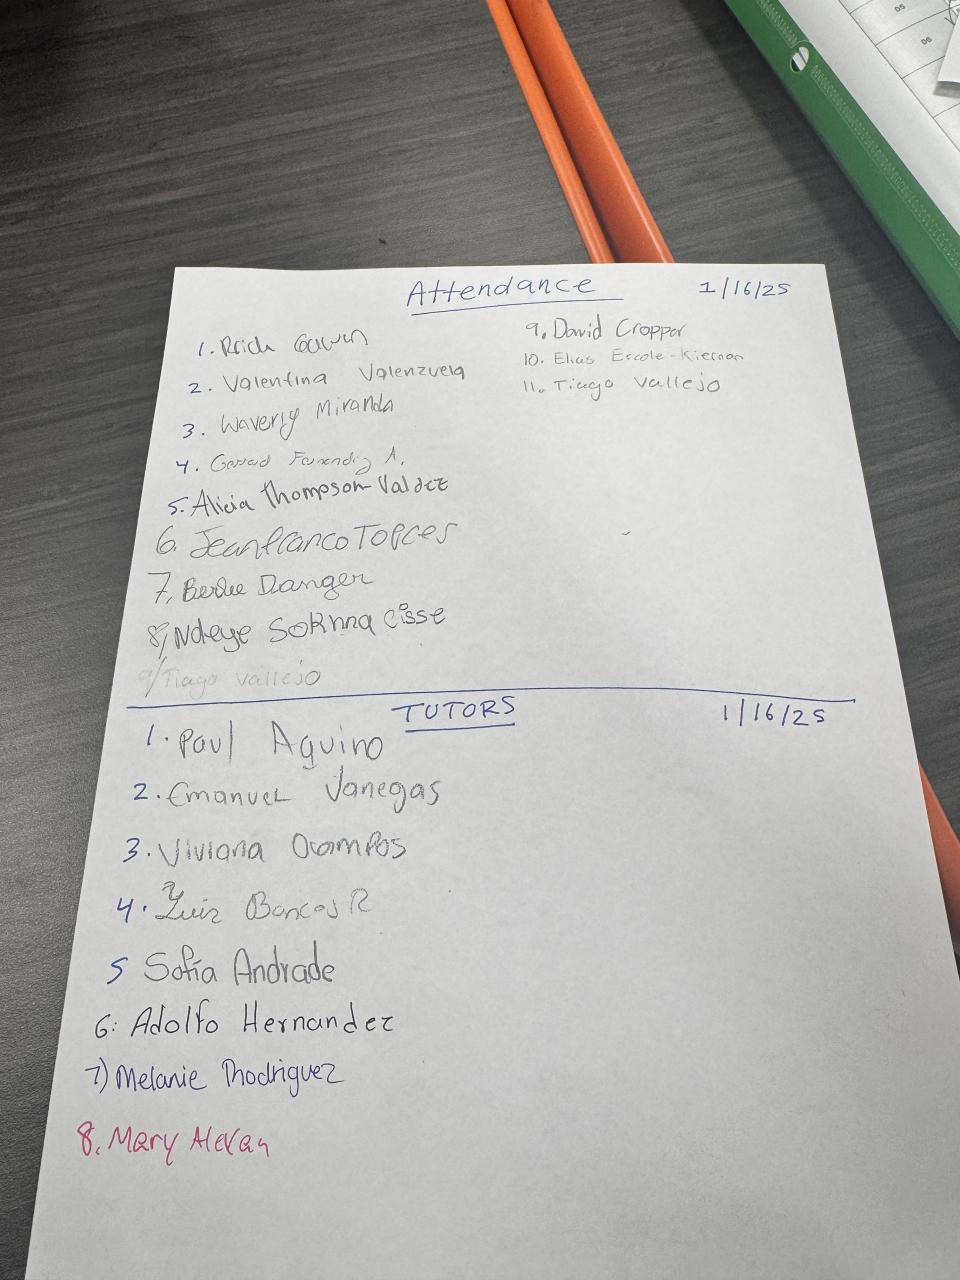 Attendance 1/16/25
1.
2. Valentina Valenzuela
3. Waverly Miranda
4. A.
5. Alicia Thompson-Valdez
6. Jeanfranco Torres
7, Danger
8, Ndeye Sokhna Cisse
9/Tiago Vallejo
9. David Cropper
10. Elias Ercole-Kiernan
11. Tiago Vallejo
TUTORS 1/16/25
1. Paul Aquino
2. Emanuel Vanegas
3. Viviana Ocampos
4. Luiz R
5 Sofía Andrade
6: Adolfo Hernandez
7) Melanie Rhodriguez
8. Mary
DS
DS